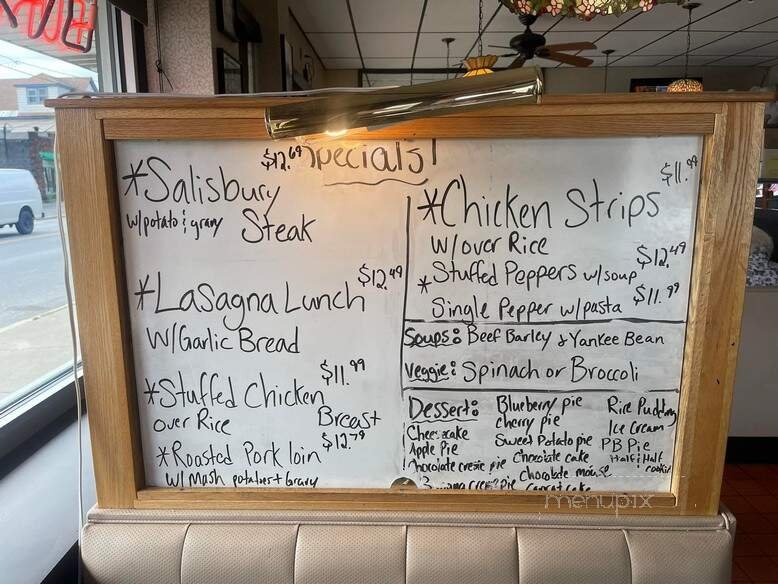 Specials!
$12.69
*Salisbury
w/potato & gravy Steak
$12.49
*Lasagna Lunch
W/Garlic Bread
$11.99
*Stuffed Chicken
over Rice Breast
$12.79
*Roasted Pork loin
w/ Mash potatoes + Gravy
$11.99
*Chicken Strips
w/over Rice
$12.49
*Stuffed Peppers w/soup
Single Pepper w/pasta $11.99
Soups: Beef Barley & Yankee Bean
Veggie: Spinach or Broccoli
Dessert:
Cheesecake
Apple Pie
Chocolate creme pie
Banana creme pie
Blueberry pie
cherry pie
Sweet Potato pie
Chocolate cake
Chocolate mouse
carrot cake
Rice Pudding
Ice Cream
PB Pie
Half & Half
cookie
menupix